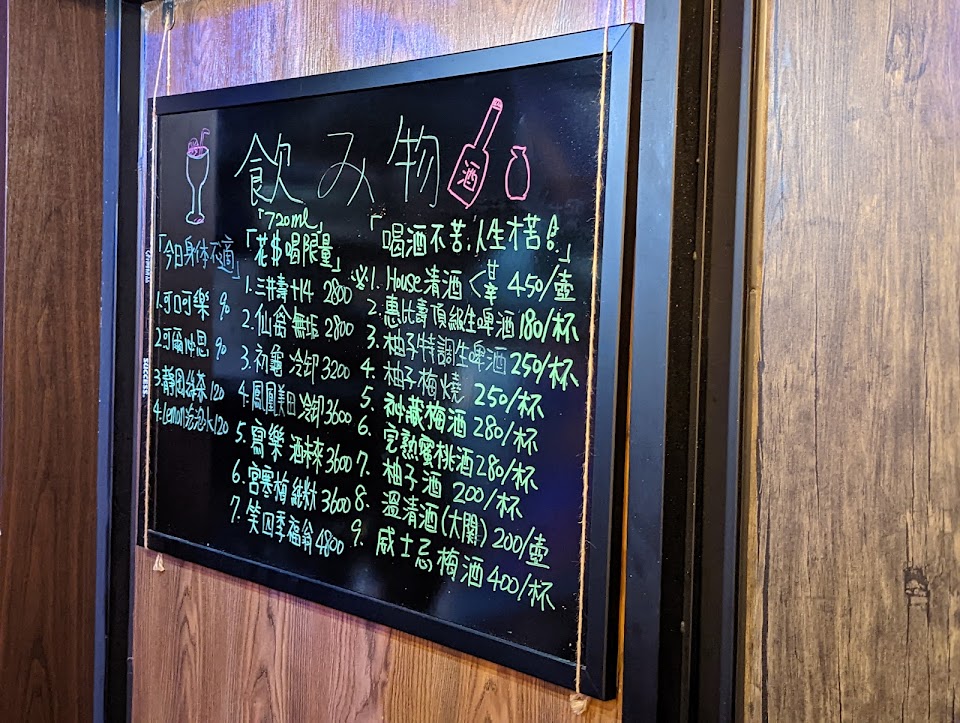 飲み物
酒
「今日身体不適」
1.可口可樂 90
2.可爾必思 90
3.靜岡綠茶 120
4.Lemon沱泡水 120
「720ml」
「花$喝限量」
1.三井壽+14 2800
2.仙禽 無垢 2800
3.初龜 冷卸 3200
4.鳳凰美田 冷卸 3600
5.寫樂 酒未來 3600
6.宮寒梅 純粋 3600
7.笑四季 福翁 4800
「喝酒不苦,人生才苦!」
※1. House清酒 < 甘 辛 450/壺
2.惠比壽頂級生啤酒 180/杯
3.柚子特調生啤酒 250/杯
4.柚子梅燒 250/杯
5.祕藏梅酒 280/杯
6.完熟蜜桃酒 280/杯
7.柚子酒 200/杯
8.溫清酒(大關) 200/壺
9.威士忌梅酒 400/杯
SUCCESS